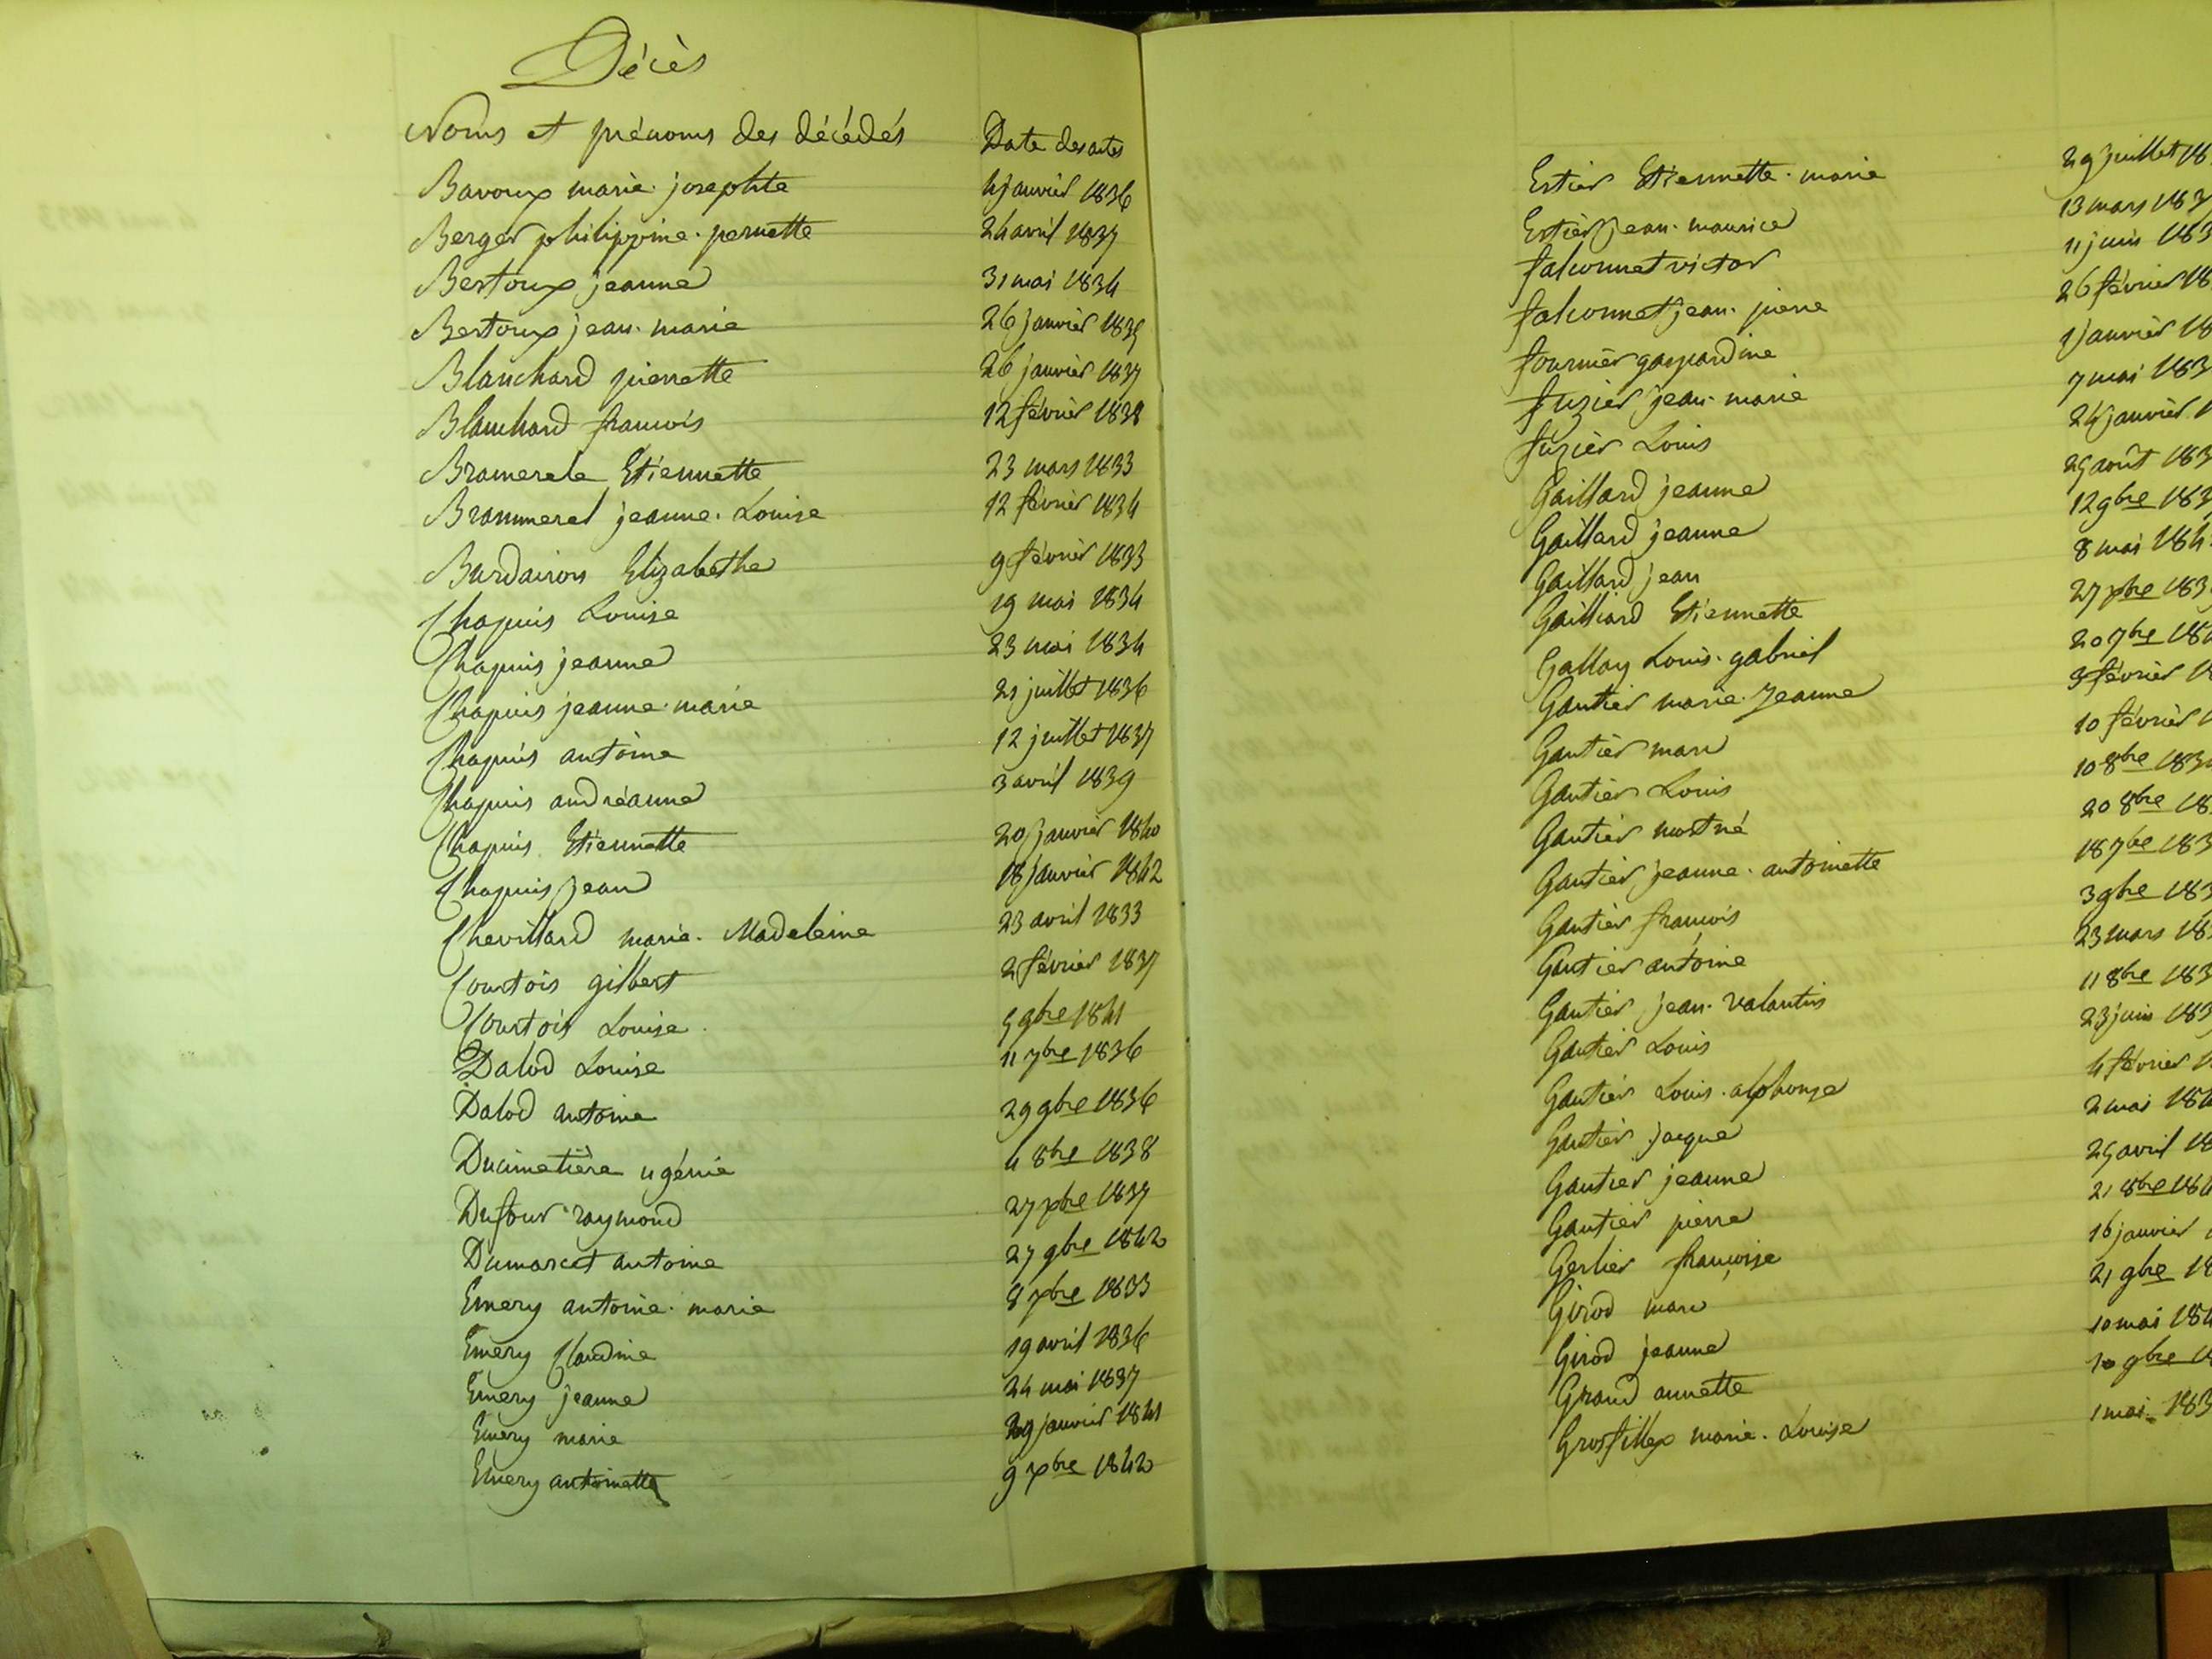 Décès
Noms et prénoms des décédés Date des actes
Bavoux marie josephte 4 janvièr 1836
Berger philippine pernette 24 avril 1837
Bertoux jeanne 31 mai 1834
Bertoux jean marie 26 janvièr 1835
Blanchard pierrette 26 janvièr 1837
Blanchard francois 12 févrièr 1838
Bramerele Etiennette 23 mars 1833
Brammerel jeanne Louise 12 févrièr 1834
Burdairon Elizabethe 9 févrièr 1833
Chapuis Louise 19 mai 1834
Chapuis jeanne 23 mai 1834
Chapuis jeanne marie 21 juillet 1836
Chapuis antoine 12 juillet 1837
Chapuis andréanne 3 avril 1839
Chapuis Etiennette 20 janvièr 1840
Chapuis jean 18 janvièr 1842
Chevillard marie Madeleine 23 avril 1833
Courtois gilbert 2 févrièr 1837
Courtois Louise 5 9bre 1841
Dalod Louise 11 7bre 1836
Dalod antoine 29 9bre 1836
Ducimetière ugénie 4 8bre 1838
Dufour raymond 27 xbre 1837
Dumarcet antoine 27 9bre 1842
Emery antoine marie 8 xbre 1833
Emery Claudine 19 avril 1836
Emery jeanne 24 mai 1837
Emery marie 29 janvièr 1841
Emery antoinette 9 xbre 1842
Estier Etiennette marie 29 juillet 18
Estièr jean maurice 13 mars 183
falconnet victor 11 juin 183
falconnet jean pierre 26 févrièr 18
fournièr gaspardine 1 janvièr 18
fuzièr jean marie 7 mai 183
fuzièr Louis 24 janvièr 1
Gaillard jeanne 25 août 183
Gaillard jeanne 12 9bre 183
Gaillard jean 8 mai 184
Gailliard Etiennette 27 xbre 183
Gallay Louis gabriel 20 7bre 184
Gautièr marie Jeanne 3 févrièr 18
Gautièr marc 10 févrièr 1
Gautièr Louis 10 8bre 183
Gautièr mort né 20 8bre 18
Gautièr jeanne antoinette 18 7bre 183
Gautièr francois 3 9bre 183
Gautier antoine 23 mars 18
Gautièr jean valantin 11 8bre 183
Gautièr Louis 23 juin 183
Gautièr Louis alphonse 4 févrièr 1
Gautièr jacque 2 mai 184
Gautièr jeanne 25 avril 18
Gautièr pierre 21 8bre 184
Gerlier francoise 16 janvièr 1
Girod marc 21 9bre 18
Girod jeanne 10 mai 184
Grand annette 10 9bre 18
Grosfillex marie Louise 1 mai 183